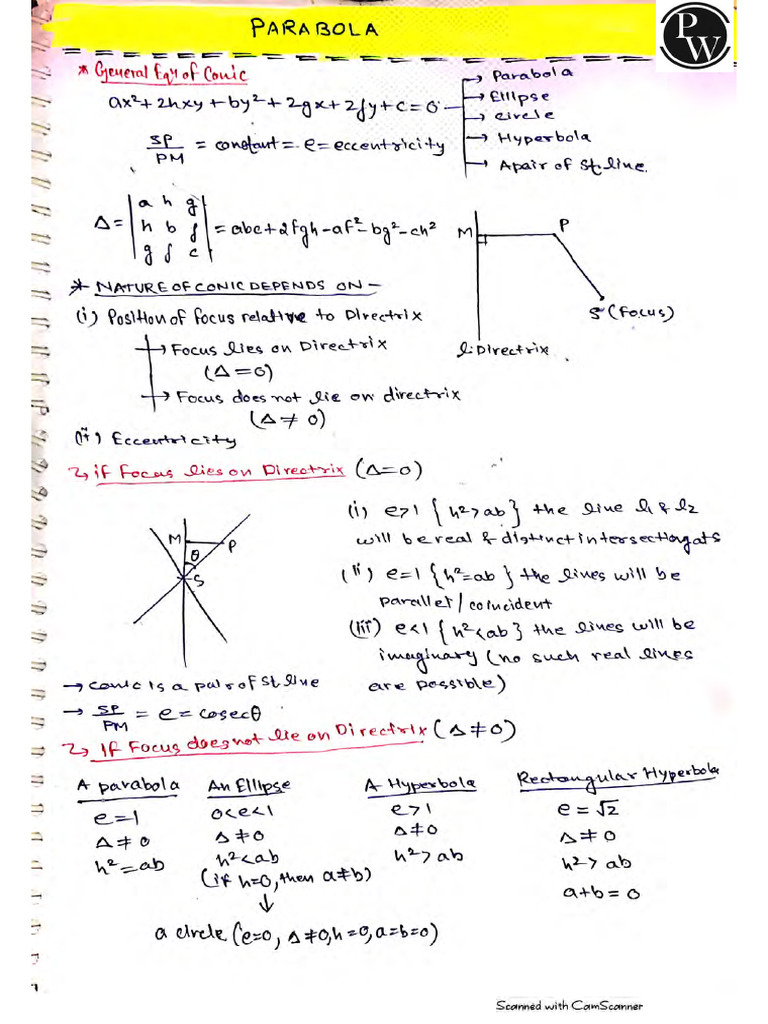 PARABOLA
PW
* General Eqn of Conic
ax²+2hxy+by²+2gx+2fy+c=0
→ Parabola
→ Ellipse
→ circle
→ Hyperbola
→ A pair of st. line.
SP/PM = constant = e = eccentricity
Δ = |a h g| = abc+2fgh-af²-bg²-ch²
|h b f|
|g f c|
M P
S (Focus)
l: Directrix
* NATURE OF CONIC DEPENDS ON -
(i) Position of focus relative to Directrix
→ Focus lies on Directrix
(Δ=0)
→ Focus does not lie on directrix
(Δ≠0)
(ii) Eccentricity
if Focus lies on Directrix (Δ=0)
M P
θ
S
(i) e>1 {h²>ab} the line l1 & l2
will be real & distinct intersecting at S
(ii) e=1 {h²=ab} the lines will be
parallel/coincident
(iii) e<1 {h²<ab} the lines will be
imaginary (no such real lines
are possible)
→ conic is a pair of st line
→ SP/PM = e = cosecθ
If Focus does not lie on Directrix (Δ≠0)
A parabola An Ellipse A Hyperbola Rectangular Hyperbola
e=1 0<e<1 e>1 e=√2
Δ≠0 Δ≠0 Δ≠0 Δ≠0
h²=ab h²<ab h²>ab h²>ab
(if h=0, then a≠b) a+b=0
↓
a circle (e=0, Δ≠0, h=0, a=b=0)
Scanned with CamScanner